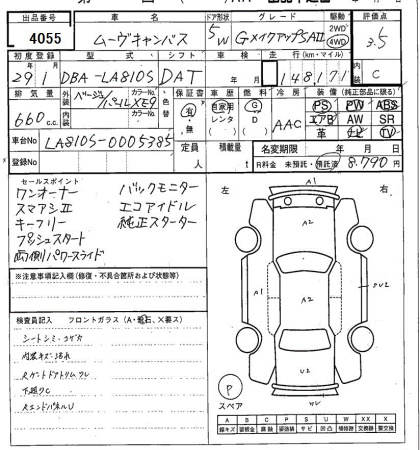 出品番号 車名 ドア形状 グレード 駆動 評価点
4055 ムーヴキャンバス 5W GメイクアップSAⅡ 2WD 4WD 3.5
初度登録 型式 シフト 車検 走行(km・マイル) 内装
29 1 DBA-LA810S DAT 148171 C
排気量 外装 ベージュ/パール カラーNo. XE9 保証書 車歴 燃料 冷房 装備(純正部品に限る)
660 c.c. 内装 カラーNo. 有・無 自家用 レンタ G D AAC PS PW ABS
エアB AW SR
革 ナビ TV
車台No LA810S-0005385 定員 積載量 名変期限 年 月 日
登録No 人 t R料金 未預託・預託済 8,790円
セールスポイント
ワンオーナー バックモニター
スマアシⅡ エコアイドル
キーフリー 純正スターター
プッシュスタート
両側パワースライド
※注意事項記入欄(修復・不具合箇所および状態等)
検査員記入 フロントガラス(A・飛石、X要ス)
シートシミ・コゲ穴
内装キズ・汚れ
下廻りC
Rエンドパネル U
左 右
A1
A2
A1
UV2
U2
P
スペア
A B C P S U W X XX
線キズ 板金 腐蝕 要塗装 サビ 凹凸 補修跡 要交換 交換済